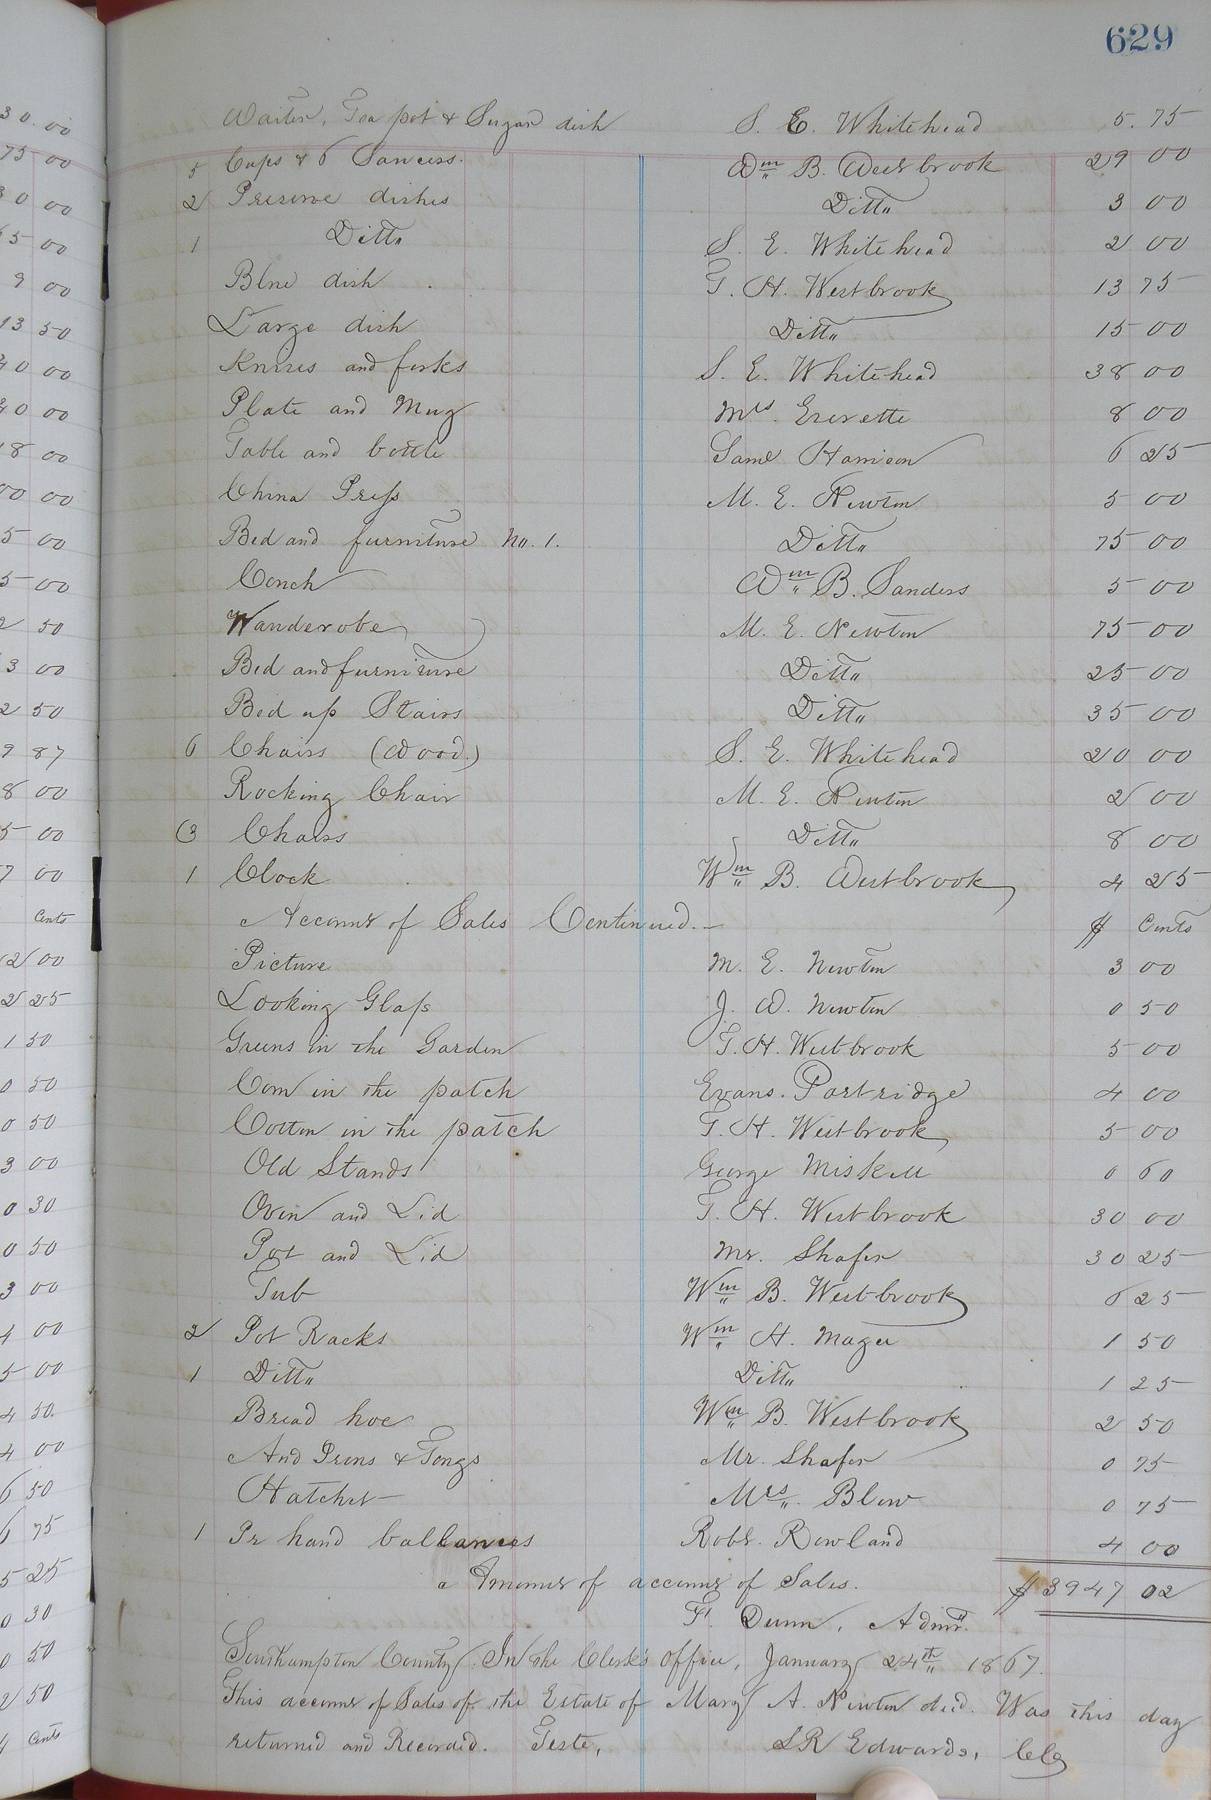 629
Waiter, Tea pot & Sugar dish S. E. Whitehead 5.75
5 Cups & 6 Saucers. Wm B. Westbrook 29 00
2 Preserve dishes Ditto 3 00
1 Ditto S. E. Whitehead 2 00
Blue dish T. H. Westbrook 13 75
Large dish Ditto 15 00
Knives and forks S. E. Whitehead 38 00
Plate and Mug Mrs. Everette 8 00
Table and bottle Saml Harrison 6 25
China Press M. E. Newton 5 00
Bed and furniture No. 1. Ditto 75 00
Couch Wm B. Sanders 5 00
Wanderobe M. E. Newton 75 00
Bed and furniture Ditto 25 00
Bed up Stairs Ditto 35 00
6 Chairs (Wood.) S. E. Whitehead 20 00
Rocking Chair M. E. Newton 2 00
3 Chairs Ditto 8 00
1 Clock Wm B. Westbrook 4 25
Account of Sales Continued. $ Cents
Picture M. E. Newton 3 00
Looking Glass J. W. Newton 0 50
Greens in the Garden T. H. Westbrook 5 00
Corn in the patch Evans. Partridge 4 00
Cotton in the patch T. H. Westbrook 5 00
Old Stands George Miskell 0 60
Oven and Lid T. H. Westbrook 30 00
Pot and Lid Mr. Shafer 30 25
Tub Wm B. Westbrook 6 25
2 Pot Racks Wm H. Magee 1 50
1 Ditto Ditto 1 25
Bread hoe Wm B. Westbrook 2 50
And Irons & Tongs Mr. Shafer 0 75
Hatchet Mrs. Blow 0 75
1 Pr hand ballances Robt. Rowland 4 00
Amount of account of Sales. $3947 02
F. Dunn, Admr.
Southampton County. In the Clerk's office, January 24th 1867.
This account of Sales of the Estate of Mary A. Newton decd. Was this day
returned and Recorded. Teste, LR Edwards, Clk